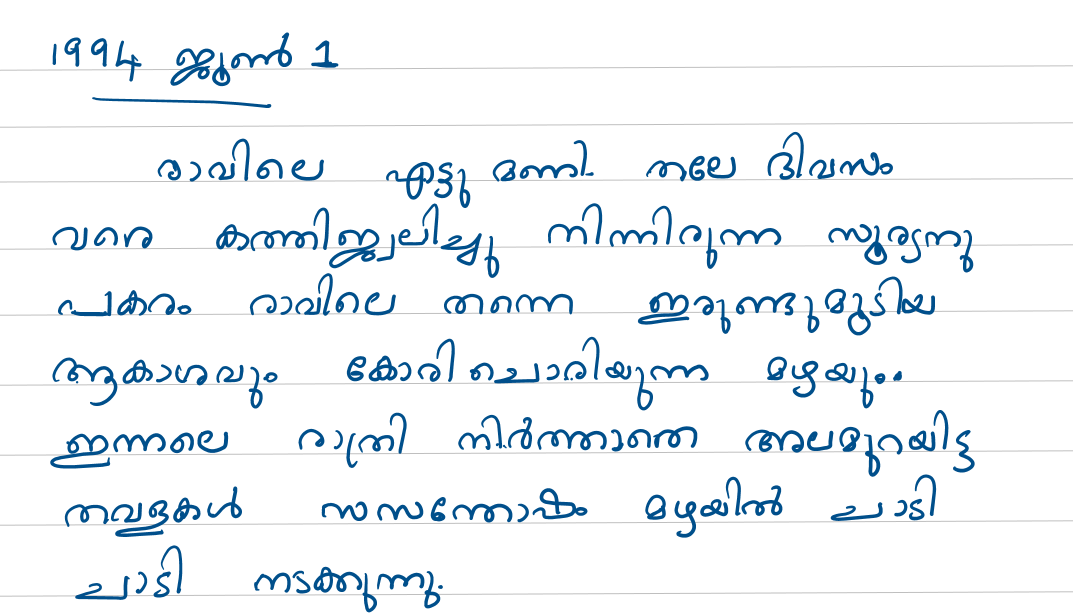 1994 ജൂൺ 1
രാവിലെ എട്ടു മണി. തലേ ദിവസം
വരെ കത്തിജ്ജ്വലിച്ചു നിന്നിരുന്ന സൂര്യനു
പകരം രാവിലെ തന്നെ ഇരുണ്ടുമൂടിയ
ആകാശവും കോരിചൊരിയുന്ന മഴയും..
ഇന്നലെ രാത്രി നിർത്താതെ അലമുറയിട്ട
തവളകൾ സസന്തോഷം മഴയിൽ ചാടി
ചാടി നടക്കുന്നു.